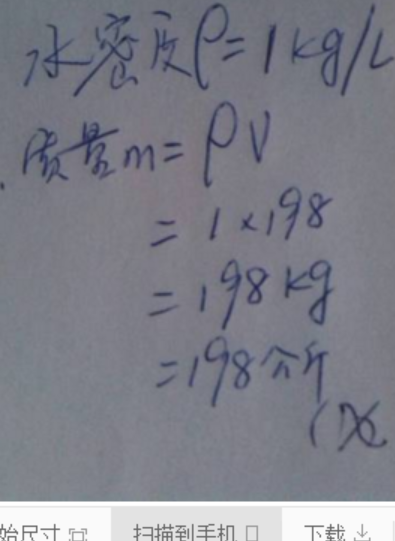 水密度ρ=1kg/L
质量m=ρV
=1×198
=198kg
=198公斤
始尺寸
扫描到手机
下载